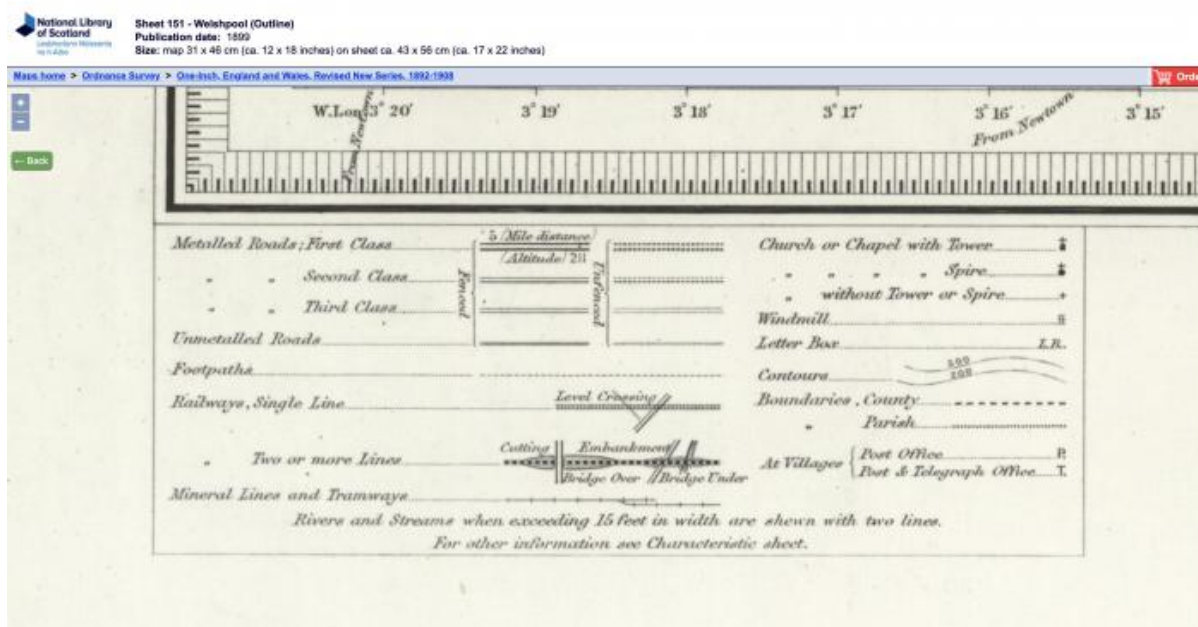 National Library
of Scotland
Leabharlann Nàiseanta
na h-Alba
Sheet 151 - Welshpool (Outline)
Publication date: 1899
Size: map 31 x 46 cm (ca. 12 x 18 inches) on sheet ca. 43 x 56 cm (ca. 17 x 22 inches)
Maps home > Ordnance Survey > One-Inch, England and Wales, Revised New Series, 1892-1908
Orde
+
−
← Back
W.Lon. 3° 20' 3° 19' 3° 18' 3° 17' 3° 16' 3° 15'
From Newtown
From Newtown
Metalled Roads; First Class
5 (Mile distance)
(Altitude) 211
" " Second Class
" " Third Class
Fenced
Unfenced
Unmetalled Roads
Footpaths
Railways, Single Line
Level Crossing
" Two or more Lines
Cutting Embankment
Bridge Over Bridge Under
Mineral Lines and Tramways
Church or Chapel with Tower
" " " " Spire
" without Tower or Spire
Windmill
Letter Box L.B.
Contours 300
200
Boundaries, County
" Parish
At Villages { Post Office P.
Post & Telegraph Office T.
Rivers and Streams when exceeding 15 feet in width are shewn with two lines.
For other information see Characteristic sheet.